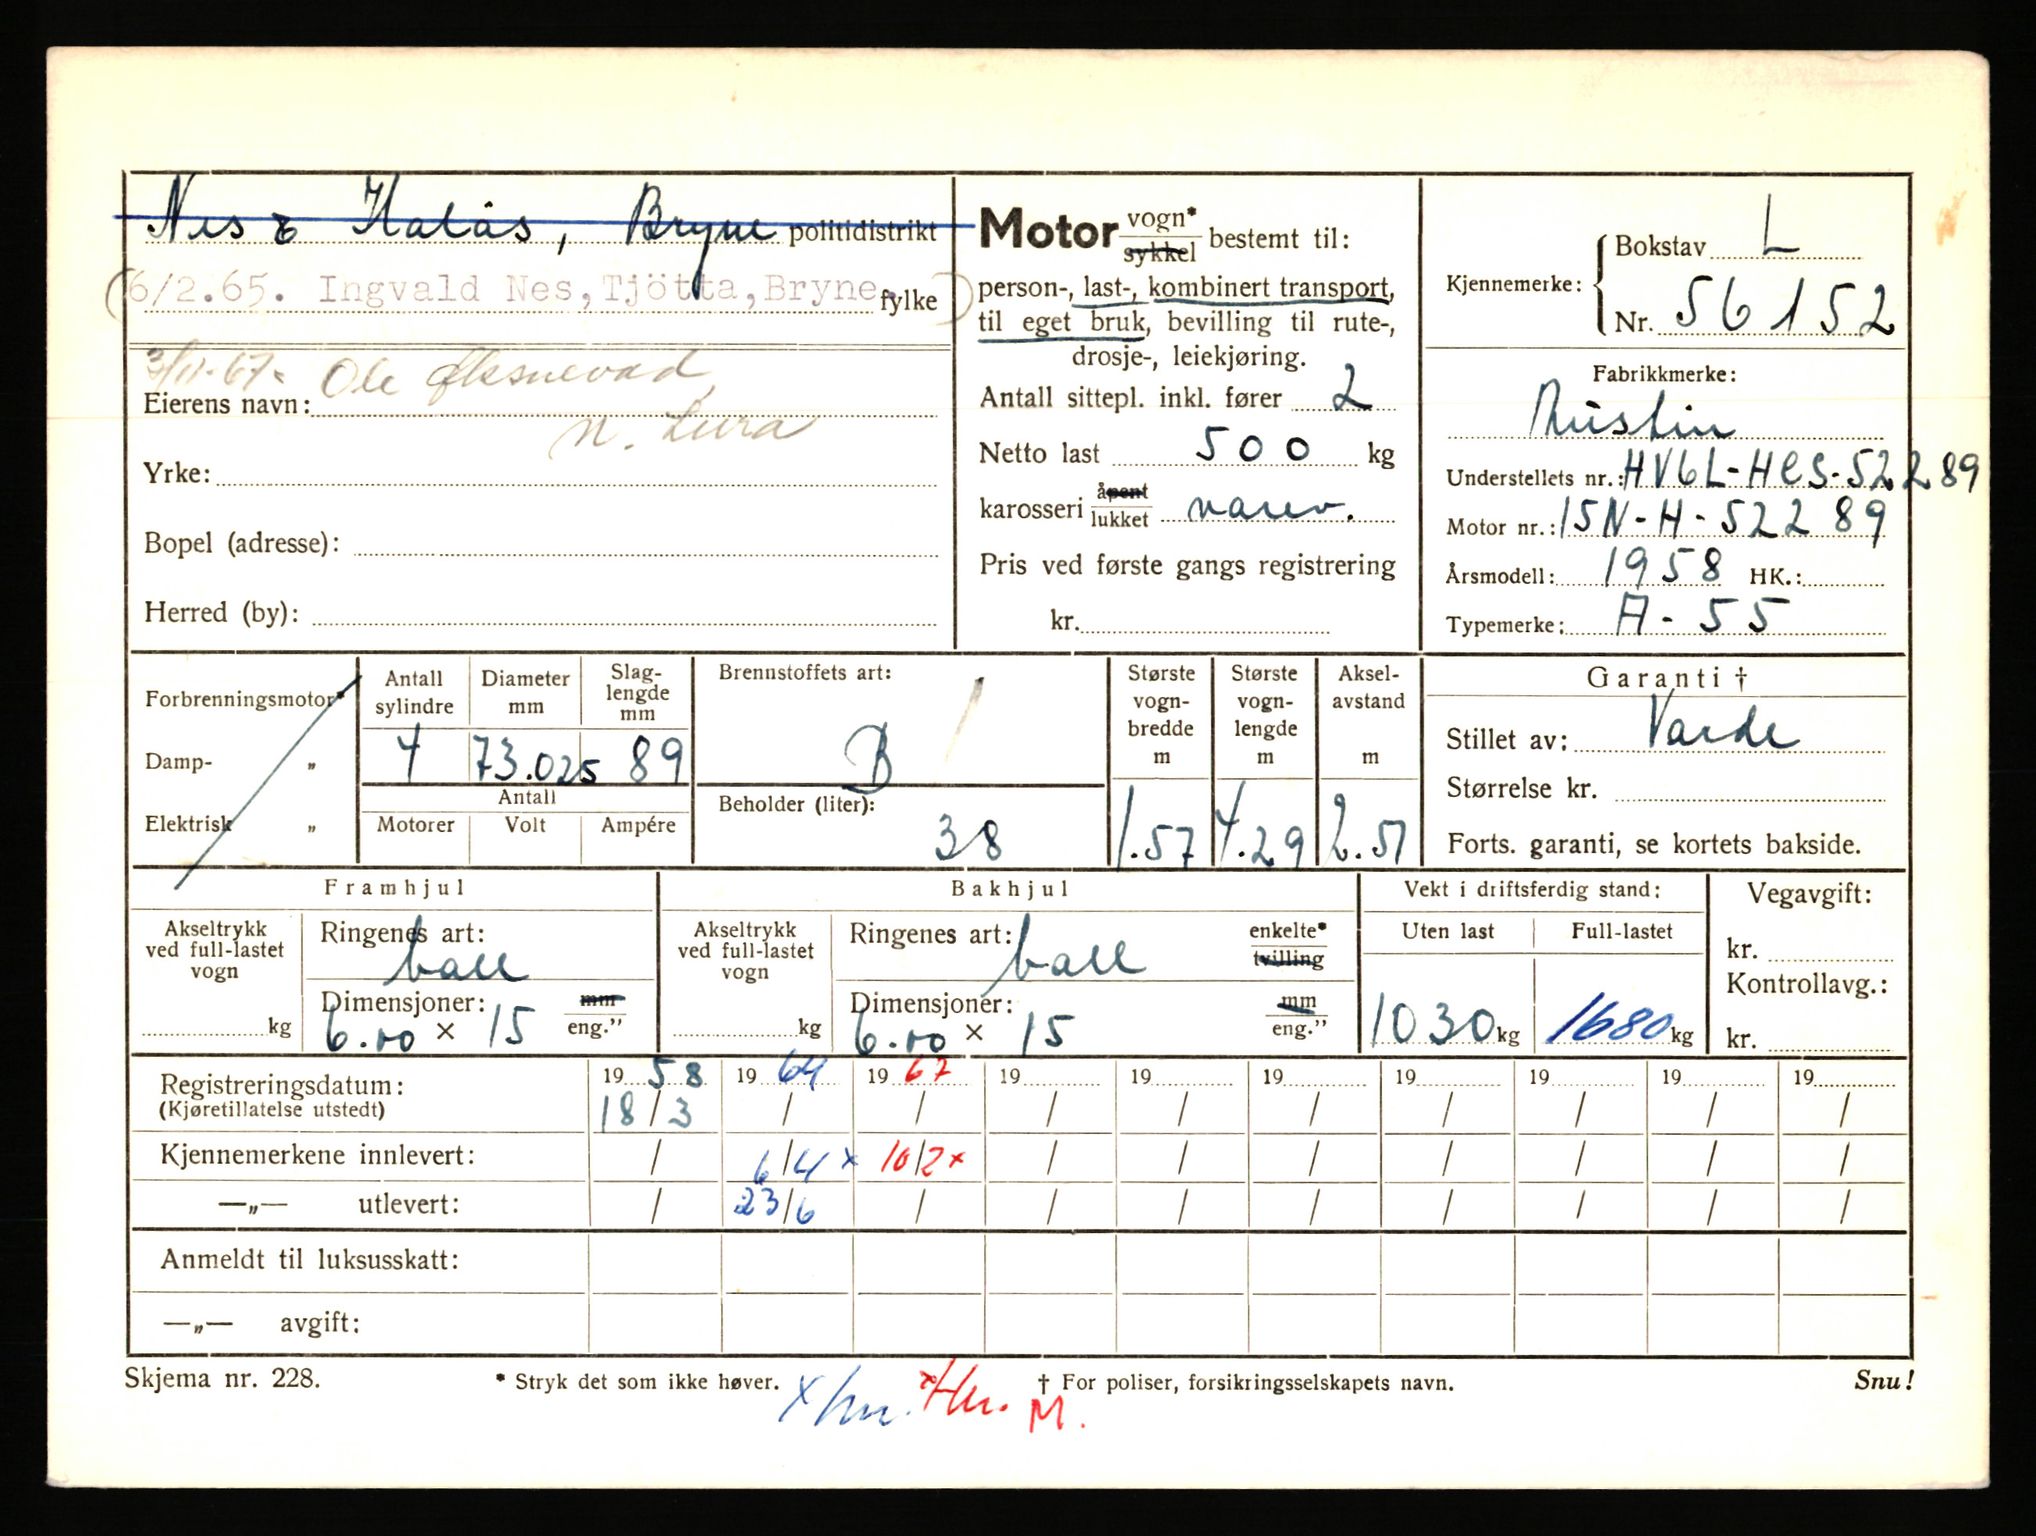 Nes & Hatås, Bryne politidistrikt
(6/2.65. Ingvald Nes, Tjötta, Bryne. fylke)
3/11-67. Ole Øksnevad,
Eierens navn:
N. Lura
Yrke:
Bopel (adresse):
Herred (by):
Motor vogn* sykkel bestemt til:
person-, last-, kombinert transport,
til eget bruk, bevilling til rute-,
drosje-, leiekjøring.
Antall sittepl. inkl. fører 2
Netto last 500 kg
karosseri åpent lukket varev.
Pris ved første gangs registrering
kr.
Kjennemerke: Bokstav L
Nr. 56152
Fabrikkmerke:
Austin
Understellets nr.: HV6L-HCS-52289
Motor nr.: 15N-H-52289
Årsmodell: 1958 HK.:
Typemerke: A-55
Forbrenningsmotor*
Damp- „
Elektrisk „
Antall sylindre
4
Diameter mm
73.025
Slag-lengde mm
89
Antall
Motorer Volt Ampére
Brennstoffets art:
B
Beholder (liter):
38
Største vogn-bredde m
1.57
Største vogn-lengde m
4.29
Aksel-avstand m
2.51
Garanti †
Stillet av: Varde
Størrelse kr.
Forts. garanti, se kortets bakside.
Framhjul
Akseltrykk ved full-lastet vogn
kg
Ringenes art:
ball
Dimensjoner: mm
6.00 × 15 eng."
Bakhjul
Akseltrykk ved full-lastet vogn
kg
Ringenes art: enkelte*
ball tvilling
Dimensjoner: mm
6.00 × 15 eng."
Vekt i driftsferdig stand:
Uten last Full-lastet
1030 kg 1680 kg
Vegavgift:
kr.
Kontrollavg.:
kr.
Registreringsdatum: 1958 1964 1967 19 19 19 19 19 19 19
(Kjøretillatelse utstedt) 18/3 / / / / / / / / /
Kjennemerkene innlevert: / 6/4 x 10/2 x / / / / / / /
—„— utlevert: / 23/6 / / / / / / / /
Anmeldt til luksusskatt:
—„— avgift:
Skjema nr. 228. * Stryk det som ikke høver. † For poliser, forsikringsselskapets navn. Snu!
M.